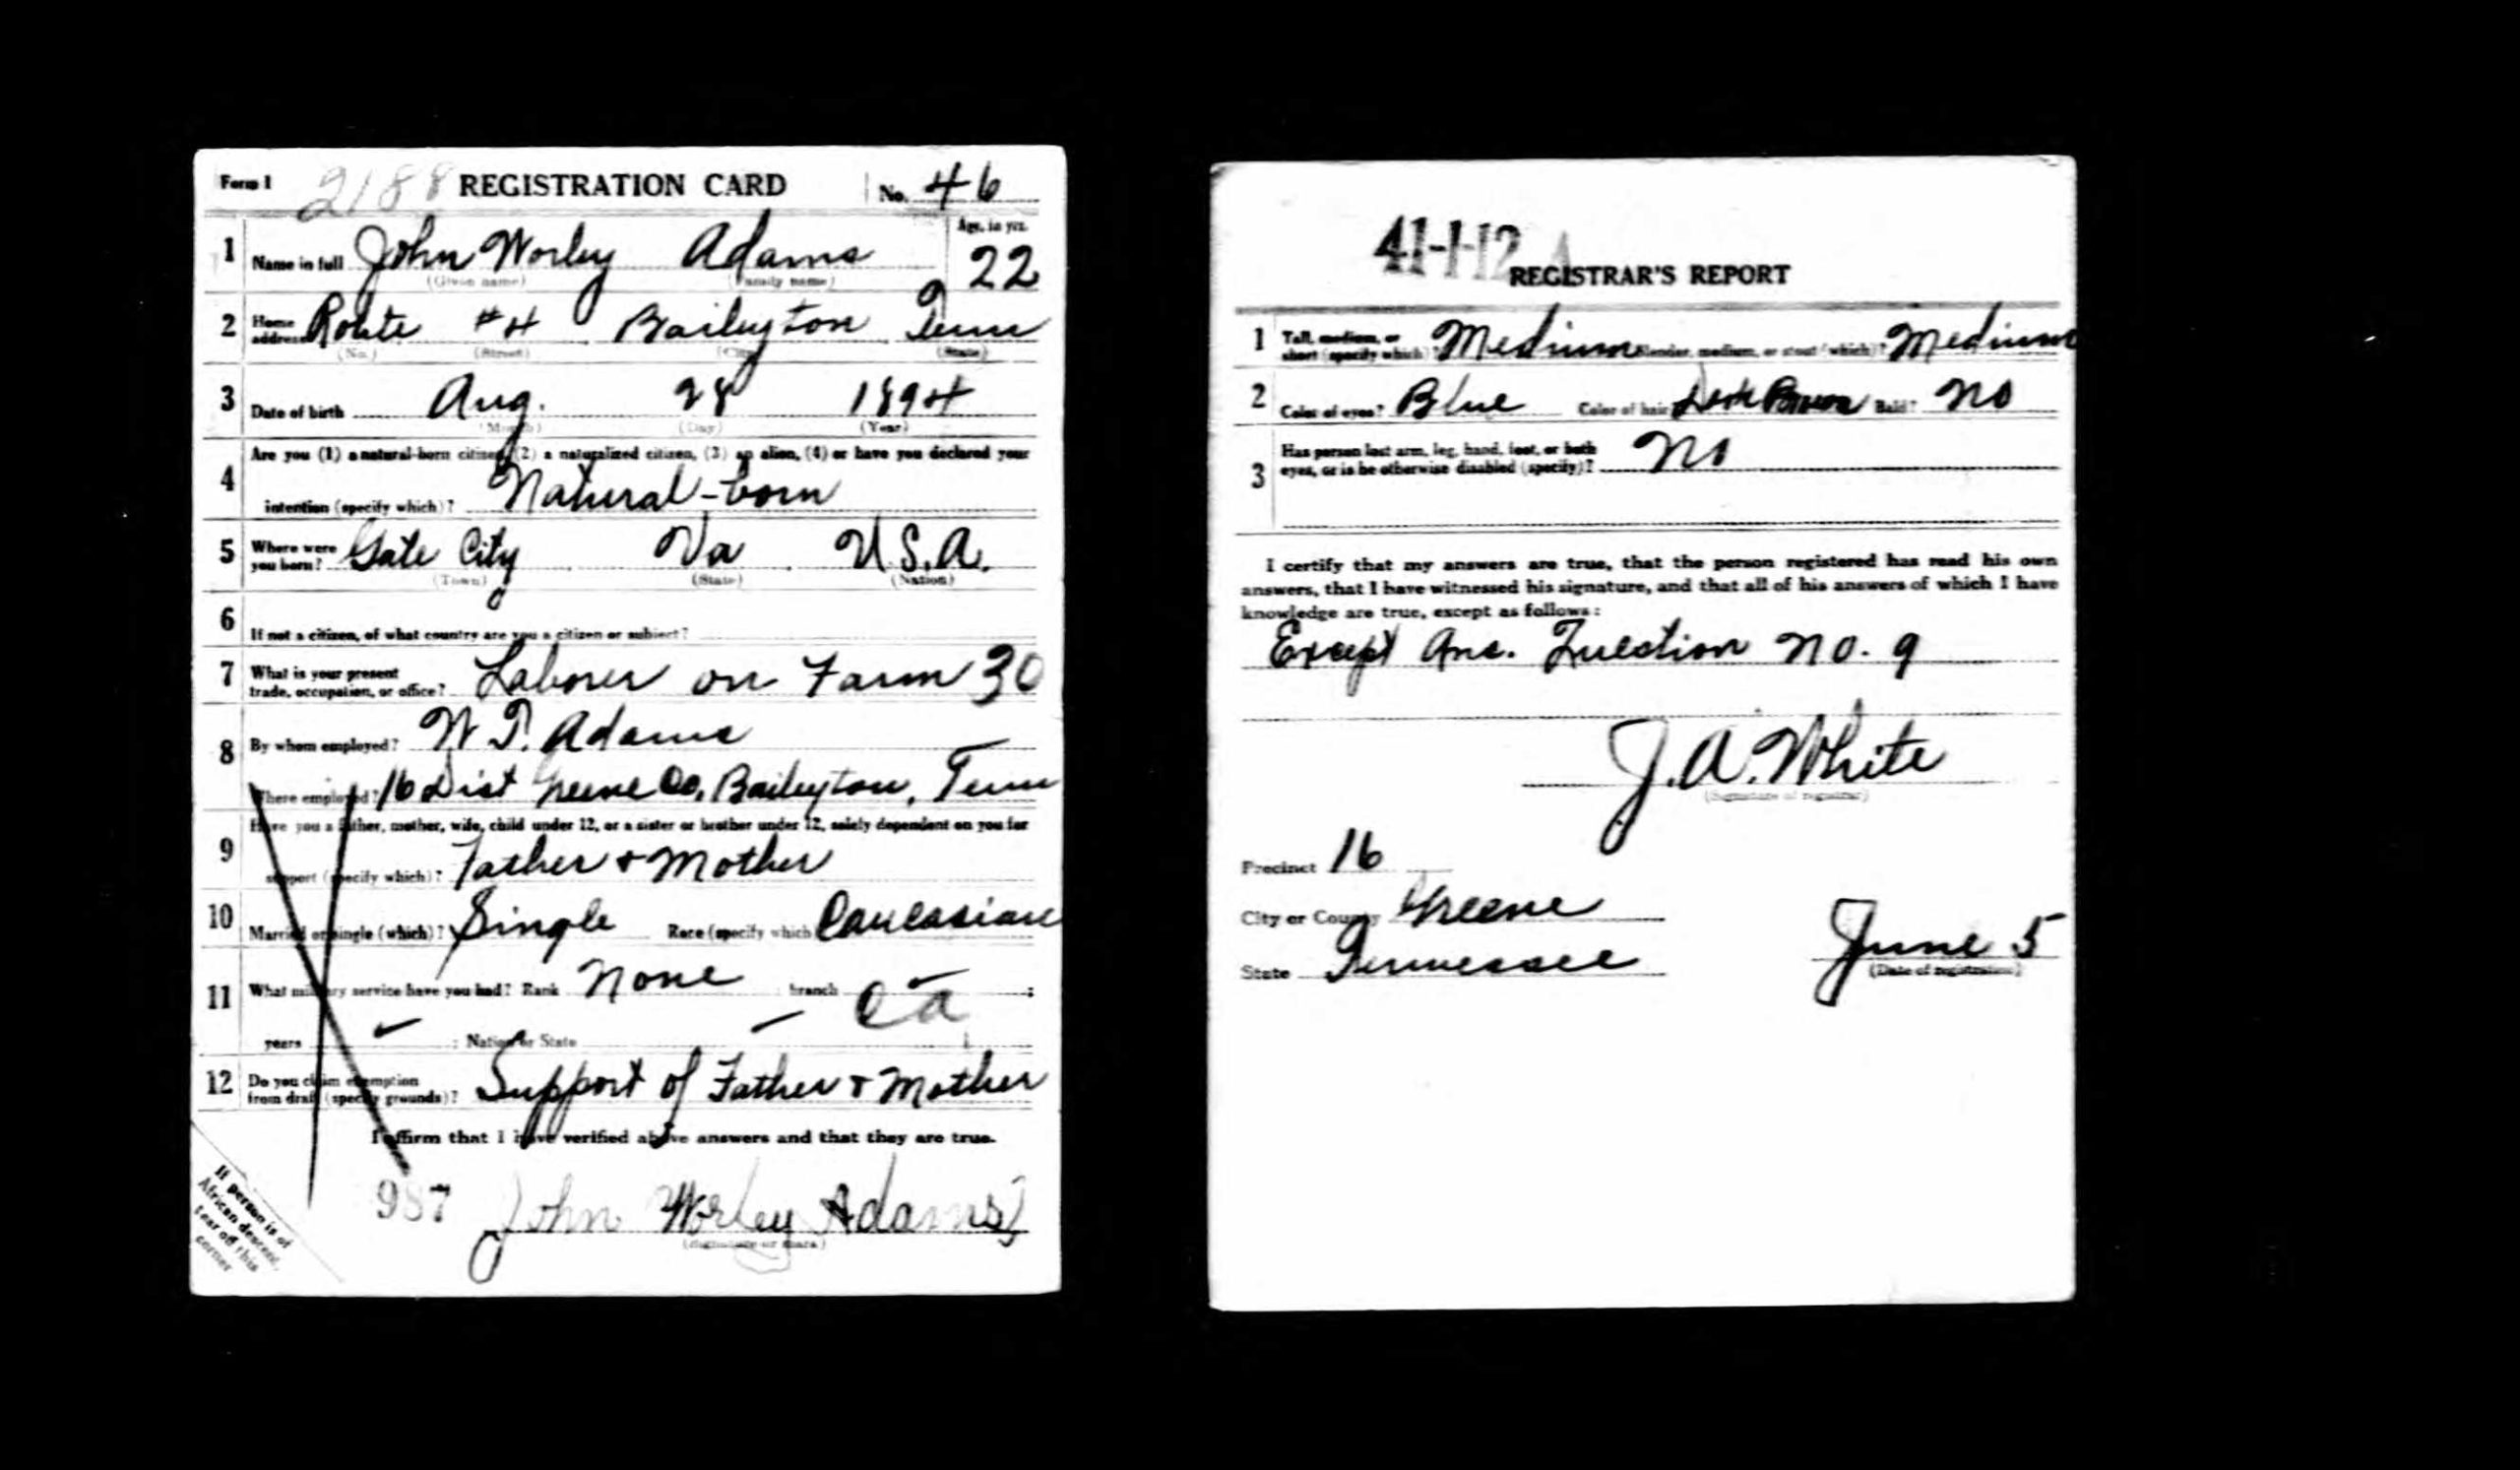 Form 1 2188 REGISTRATION CARD No. 46
1 Name in full John Worley Adams Age, in yrs. 22
(Given name) (Family name)
2 Home address Route #4 Baileyton Tenn
(No.) (Street) (City) (State)
3 Date of birth Aug. 28 1894
(Month) (Day) (Year)
4 Are you (1) a natural-born citizen, (2) a naturalized citizen, (3) an alien, (4) or have you declared your
intention (specify which)? Natural-born
5 Where were you born? Gate City Va U.S.A.
(Town) (State) (Nation)
6 If not a citizen, of what country are you a citizen or subject?
7 What is your present trade, occupation, or office? Laborer on Farm 30
8 By whom employed? W T. Adams
Where employed? 16 Dist Greene Co, Baileyton, Tenn
9 Have you a father, mother, wife, child under 12, or a sister or brother under 12, solely dependent on you for
support (specify which)? Father & Mother
10 Married or single (which)? Single Race (specify which) Caucasian
11 What military service have you had? Rank None branch Ca ;
years ; Nation or State
12 Do you claim exemption from draft (specify grounds)? Support of Father & Mother
I affirm that I have verified above answers and that they are true.
987 John Worley Adams
(Signature or mark)
If person is of
African descent,
tear off this
corner
41-1-12 A
REGISTRAR'S REPORT
1 Tall, medium, or short (specify which)? Medium Slender, medium, or stout (which)? Medium
2 Color of eyes? Blue Color of hair Dark Brown Bald? No
3 Has person lost arm, leg, hand, foot, or both
eyes, or is he otherwise disabled (specify)? No
I certify that my answers are true, that the person registered has read his own
answers, that I have witnessed his signature, and that all of his answers of which I have
knowledge are true, except as follows:
Except Ans. Question No. 9
J. A. White
(Signature of registrar)
Precinct 16
City or County Greene
State Tennessee June 5
(Date of registration)